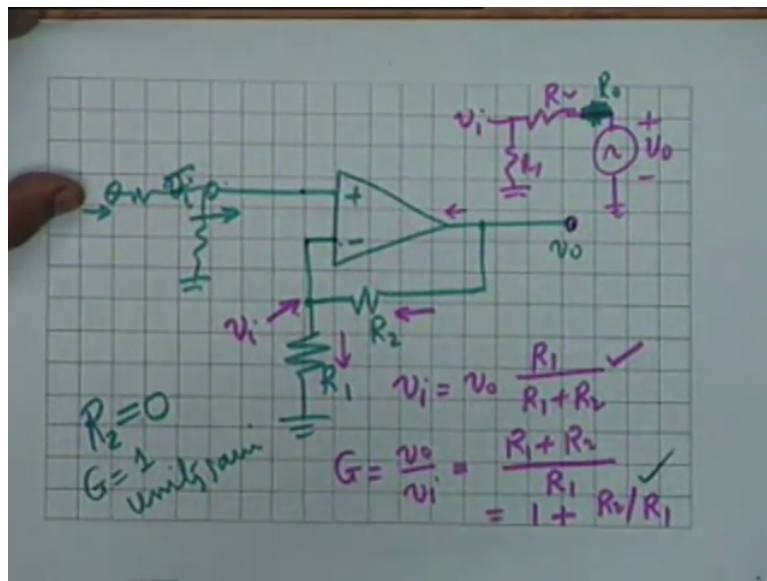 R₂ R₀
vᵢ
R₁
+
v₀
−
vᵢ
+
−
v₀
vᵢ
R₂
R₁
vᵢ = v₀ R₁/(R₁ + R₂) ✓
R₂ = 0
G = 1
unity gain
G = v₀/vᵢ = (R₁ + R₂)/R₁ ✓
= 1 + R₂/R₁